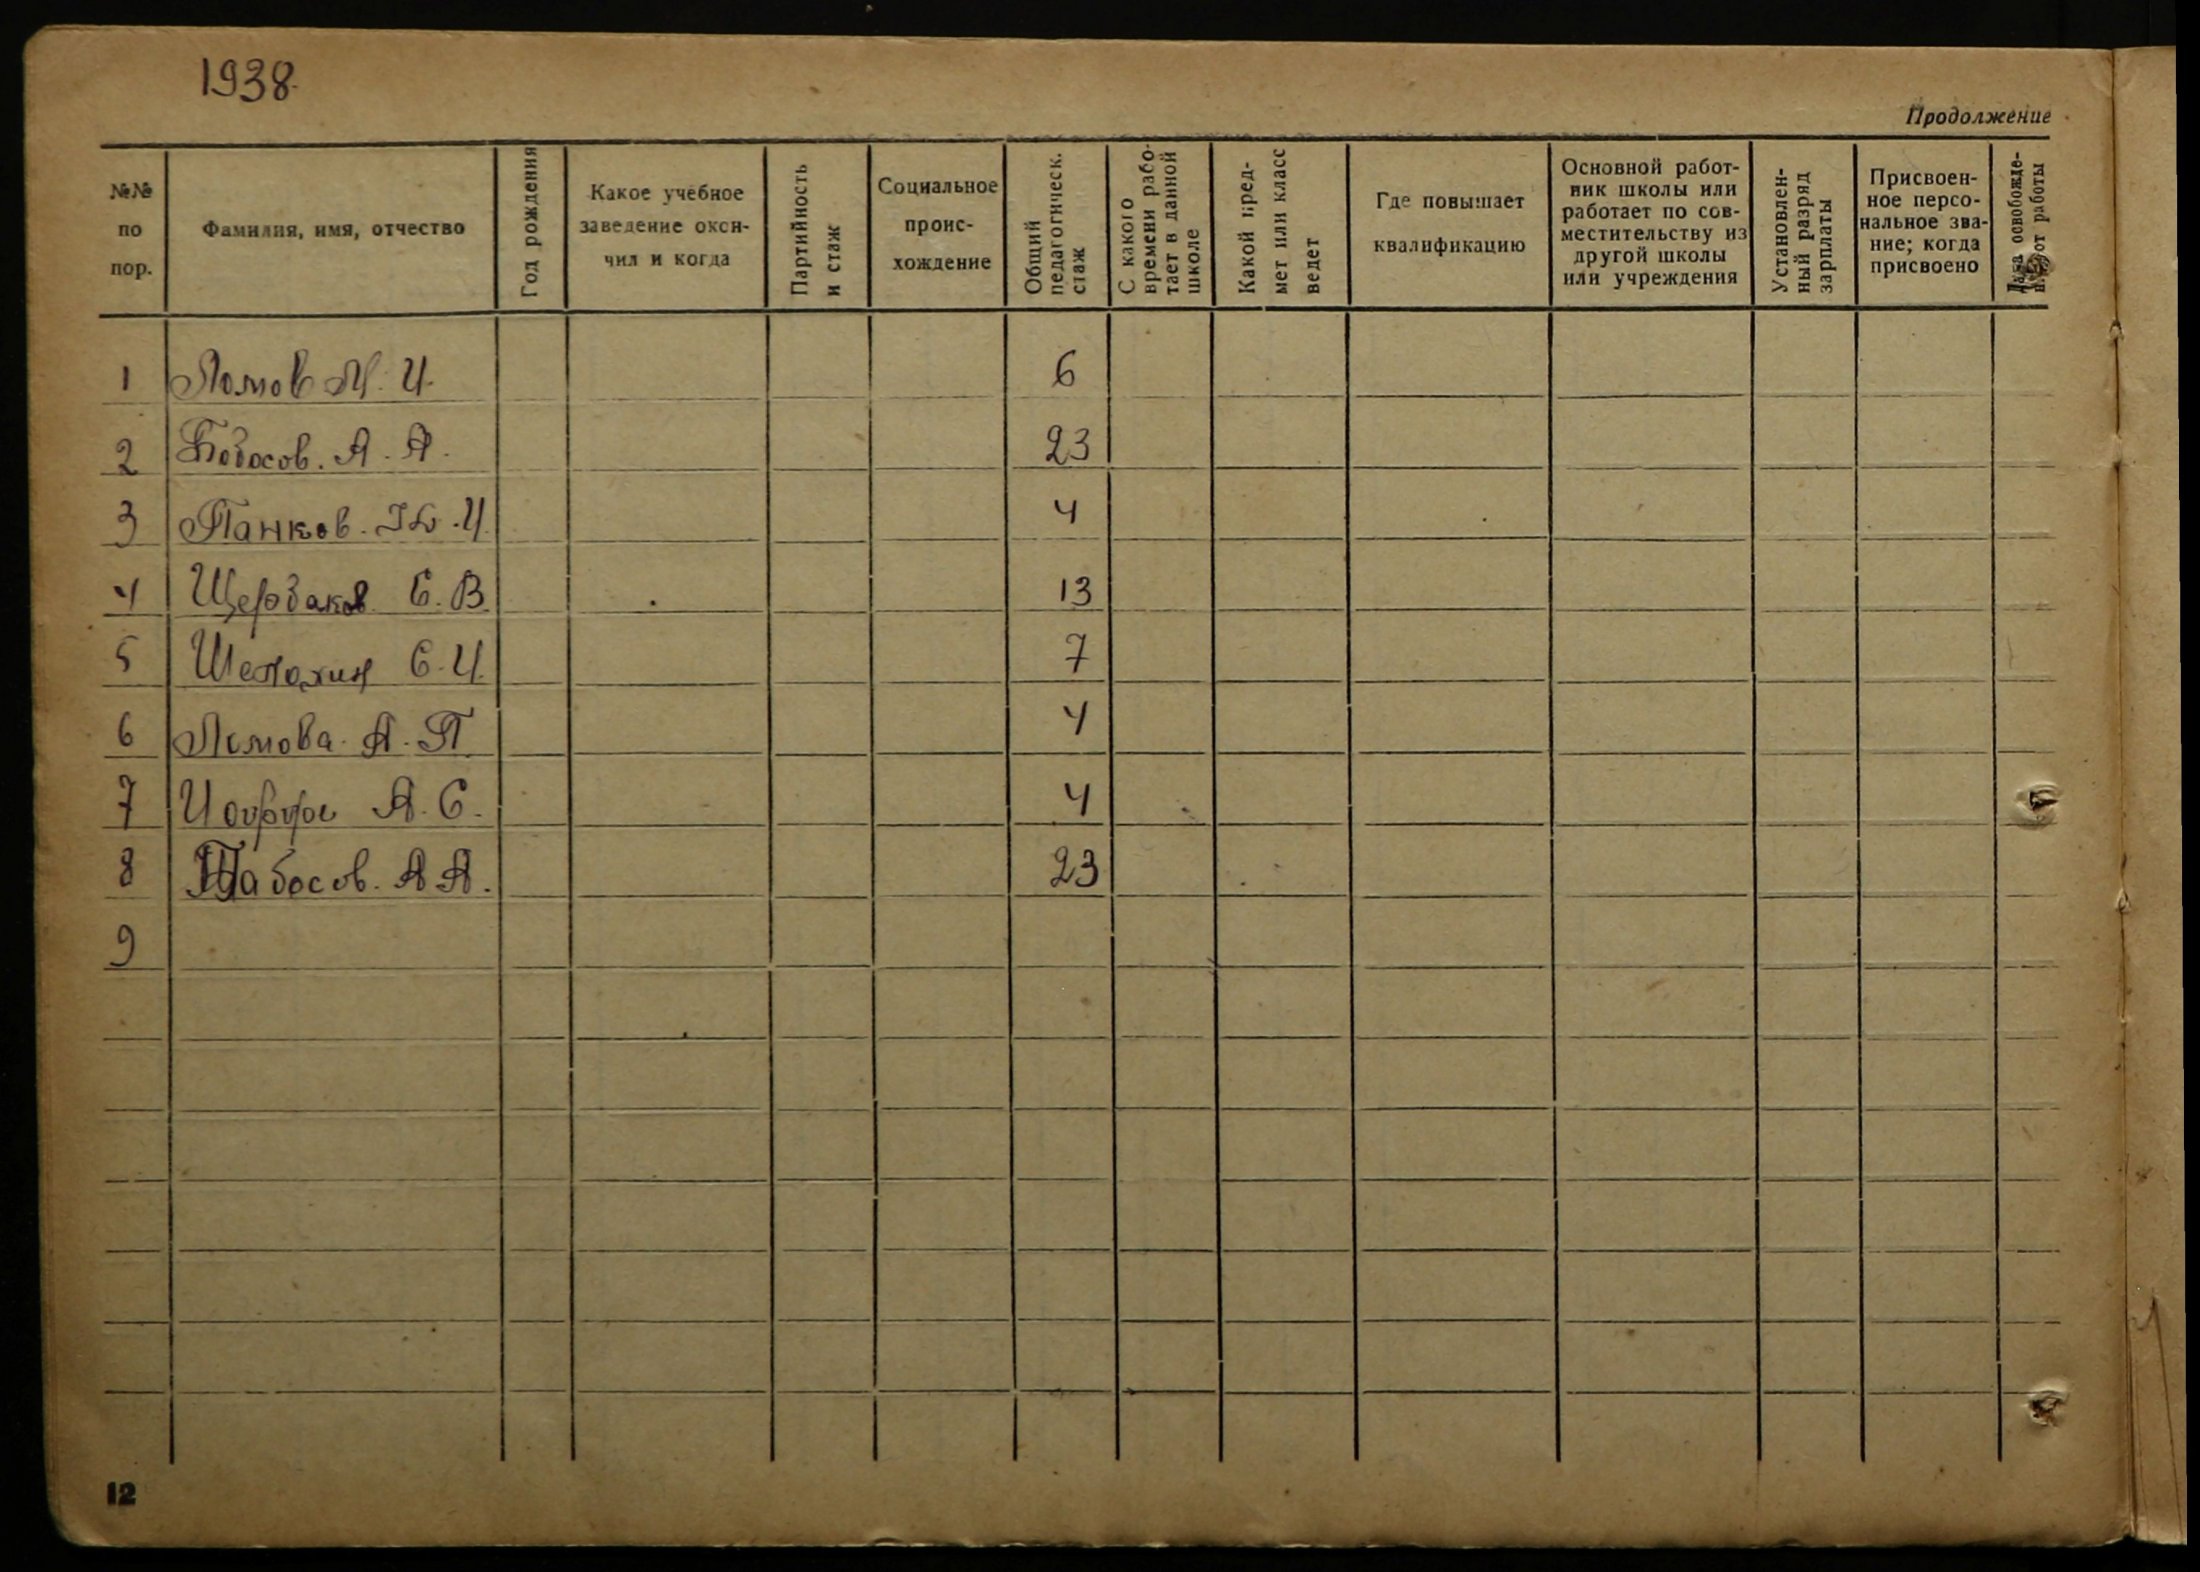 1938.
Продолжение
№№ по пор.
Фамилия, имя, отчество
Год рождения
Какое учебное заведение окон-
чил и когда
Партийность и стаж
Социальное проис-
хождение
Общий педагогическ. стаж
С какого времени рабо-
тает в данной школе
Какой пред-
мет или класс ведет
Где повышает квалификацию
Основной работ-
ник школы или работает по сов-
местительству из другой школы или учреждения
Установлен-
ный разряд зарплаты
Присвоен-
ное персо-
нальное зва-
ние; когда присвоено
освобожде-
от работы
1 Ломов М. И. 6
2 А. А. 23
3 Панков. И. 4
4 Щербаков Е. В. 13
5 Е. И. 7
6 Ломова. А. П. 4
7 А. С. 4
8 А. А. 23
9
12